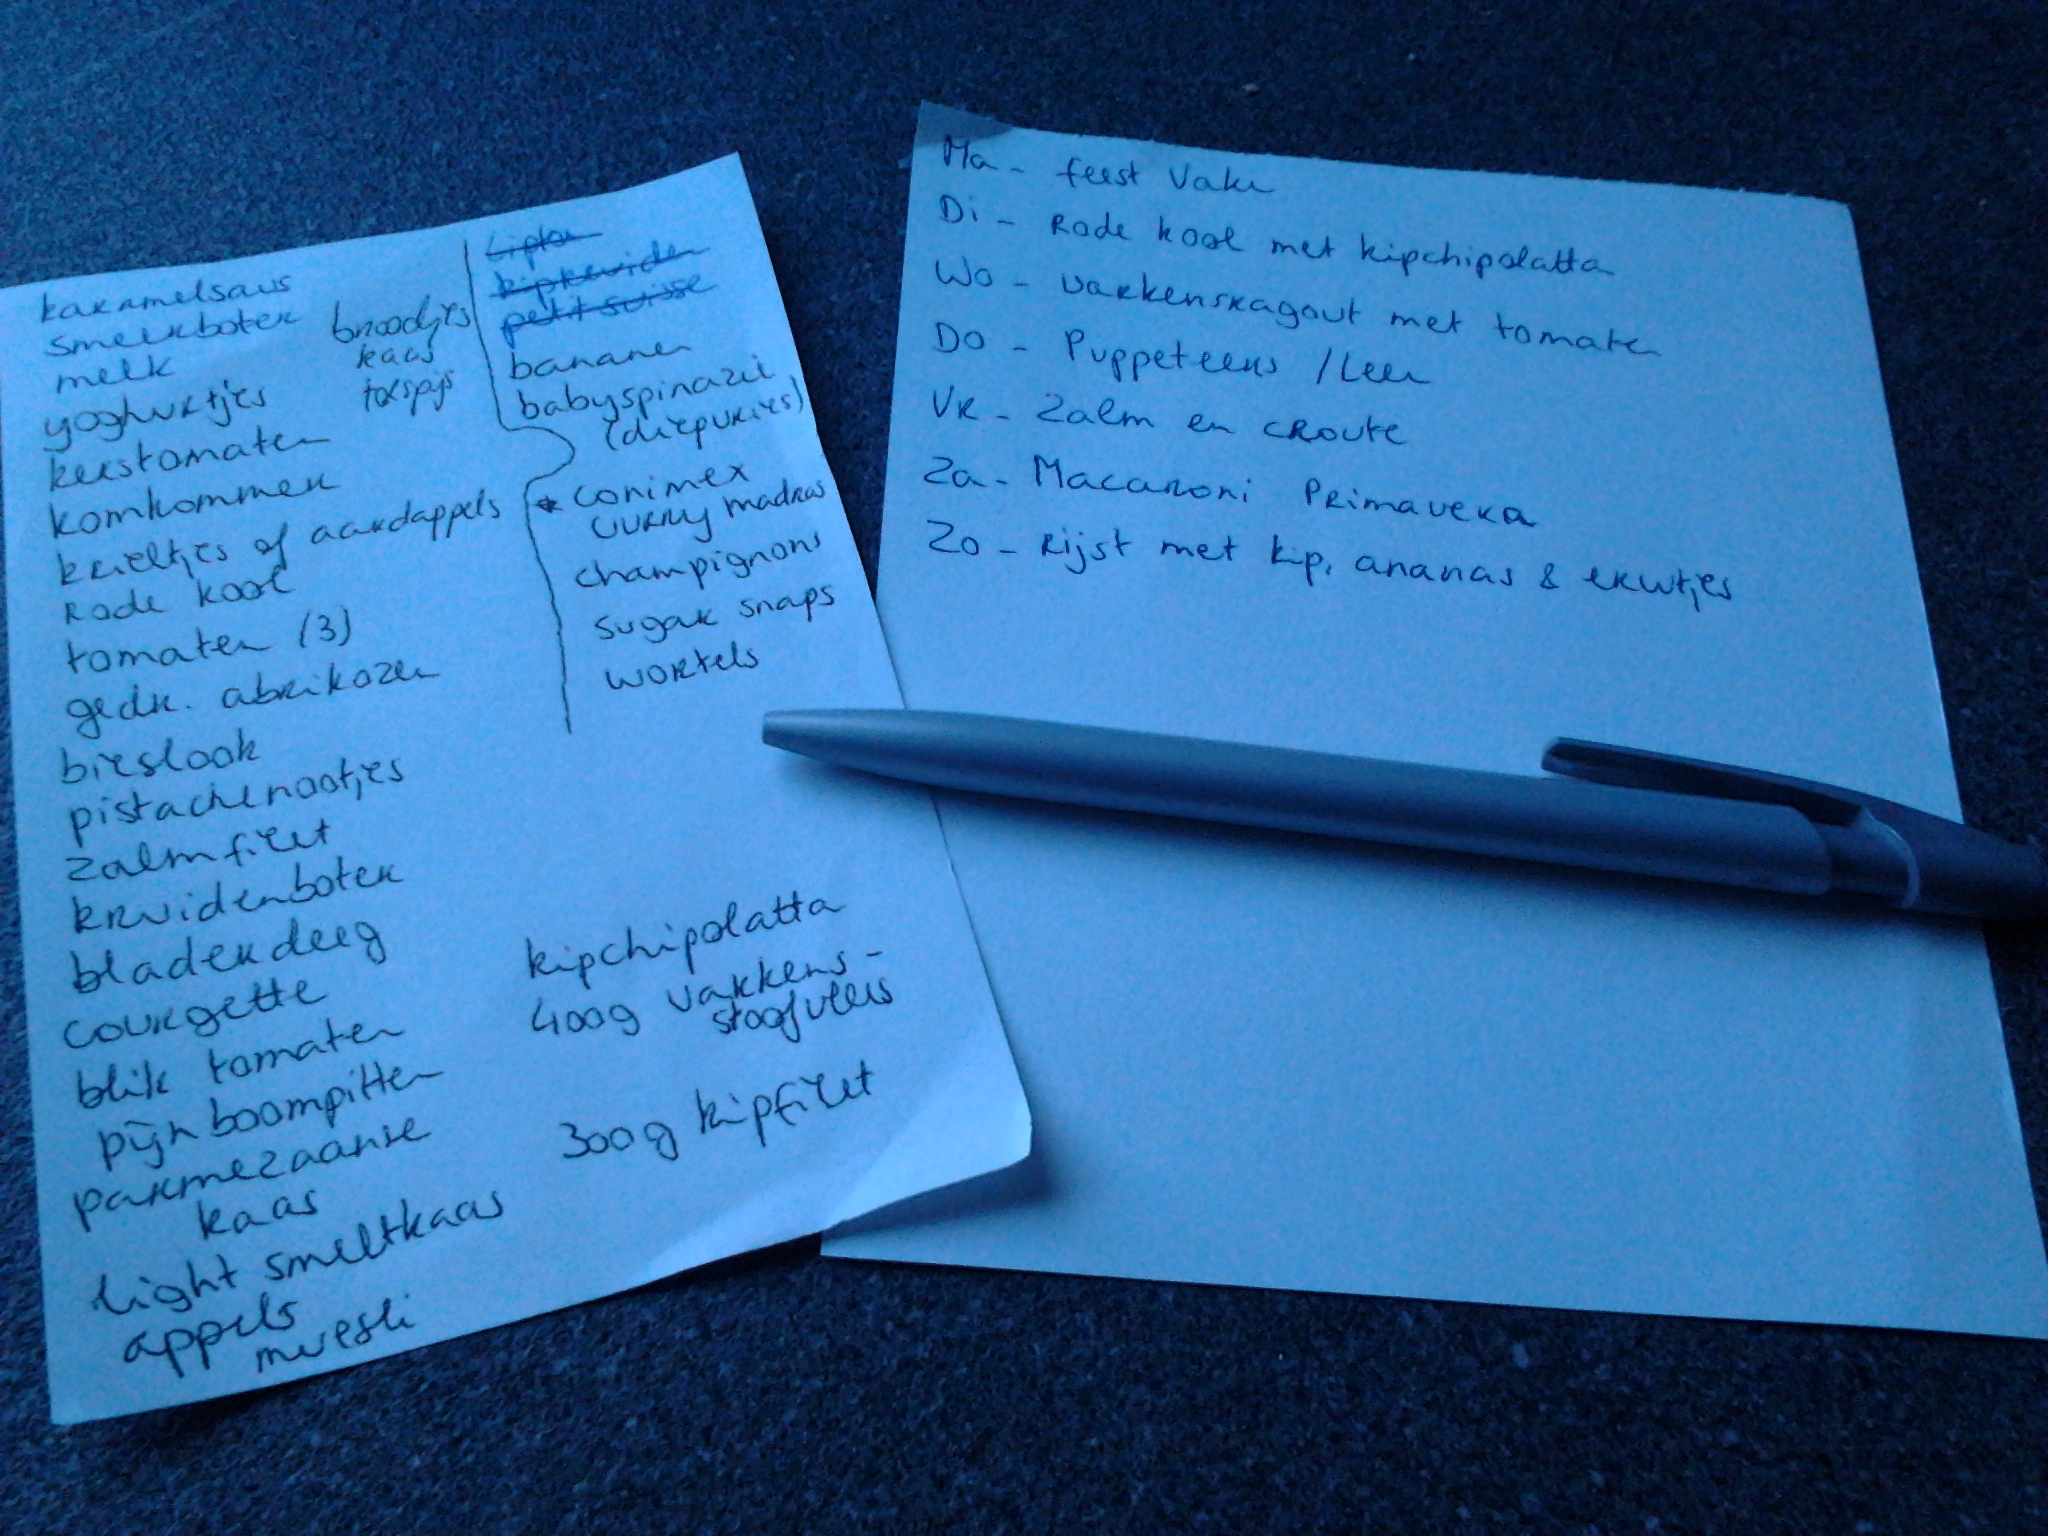 karamelsaus
smeerboter
melk
yoghurtjes
kerstomaten
komkommer
krieltjes of aardappels
Rode kool
tomaten (3)
gedr. abrikozen
bieslook
pistachenootjes
zalmfilet
kruidenboter
bladerdeeg
courgette
blik tomaten
pijnboompitten
parmezaanse
kaas
light smeltkaas
appels
muesli
broodjes
kaas
Lipton
kipkruiden
petit suisse
bananen
babyspinazie
(diepvries)
* conimex
curry madras
champignons
sugar snaps
wortels
kipchipolatta
400g varkens-
stoofvlees
300g kipfilet
Ma - feest Vake
Di - Rode kool met kipchipolatta
Wo - varkensragout met tomaten
Do - Puppeteers / Leen
VR - Zalm en croute
Za - Macaroni Primavera
Zo - Rijst met kip, ananas & erwtjes